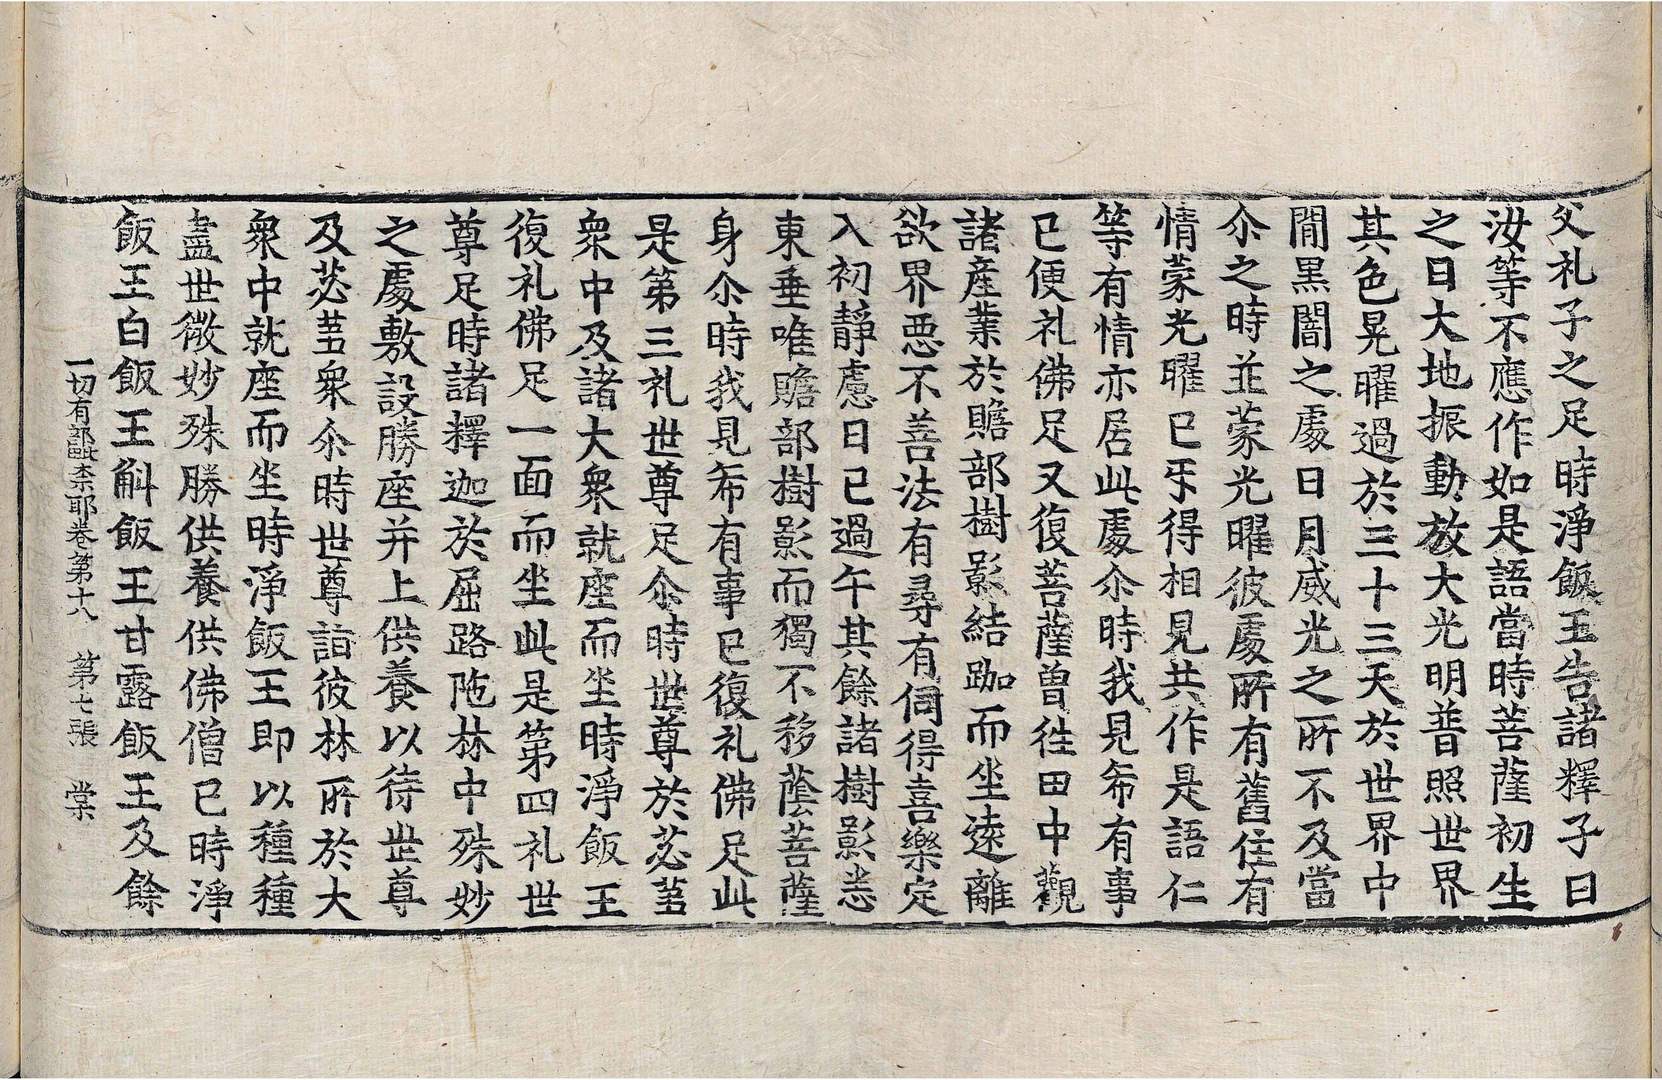 父礼子之足時淨飯王告諸釋子曰
汝等不應作如是語當時菩薩初生
之日大地振動放大光明普照世界
其色晃曜過於三十三天於世界中
間黒闇之處日月威光之所不及當
尒之時並蒙光曜彼處所有舊住有
情蒙光曜已牙得相見共作是語仁
等有情亦居此處尒時我見希有事
已便礼佛足又復菩薩曾往田中觀
諸產業於贍部樹影結跏而坐遠離
欲界惡不善法有尋有伺得喜樂定
入初靜慮日已過午其餘諸樹影悉
東垂唯贍部樹影而獨不移蔭菩薩
身尒時我見希有事已復礼佛足此
是第三礼世尊足尒時世尊於苾芻
衆中及諸大衆就座而坐時淨飯王
復礼佛足一面而坐此是第四礼世
尊足時諸釋迦於屈路陁林中殊妙
之處敷設勝座并上供養以待世尊
及苾芻衆尒時世尊詣彼林所於大
衆中就座而坐時淨飯王即以種種
盡世微妙殊勝供養供佛僧已時淨
飯王白飯王斛飯王甘露飯王及餘
一切有部毗柰耶卷第十八 第七張 棠